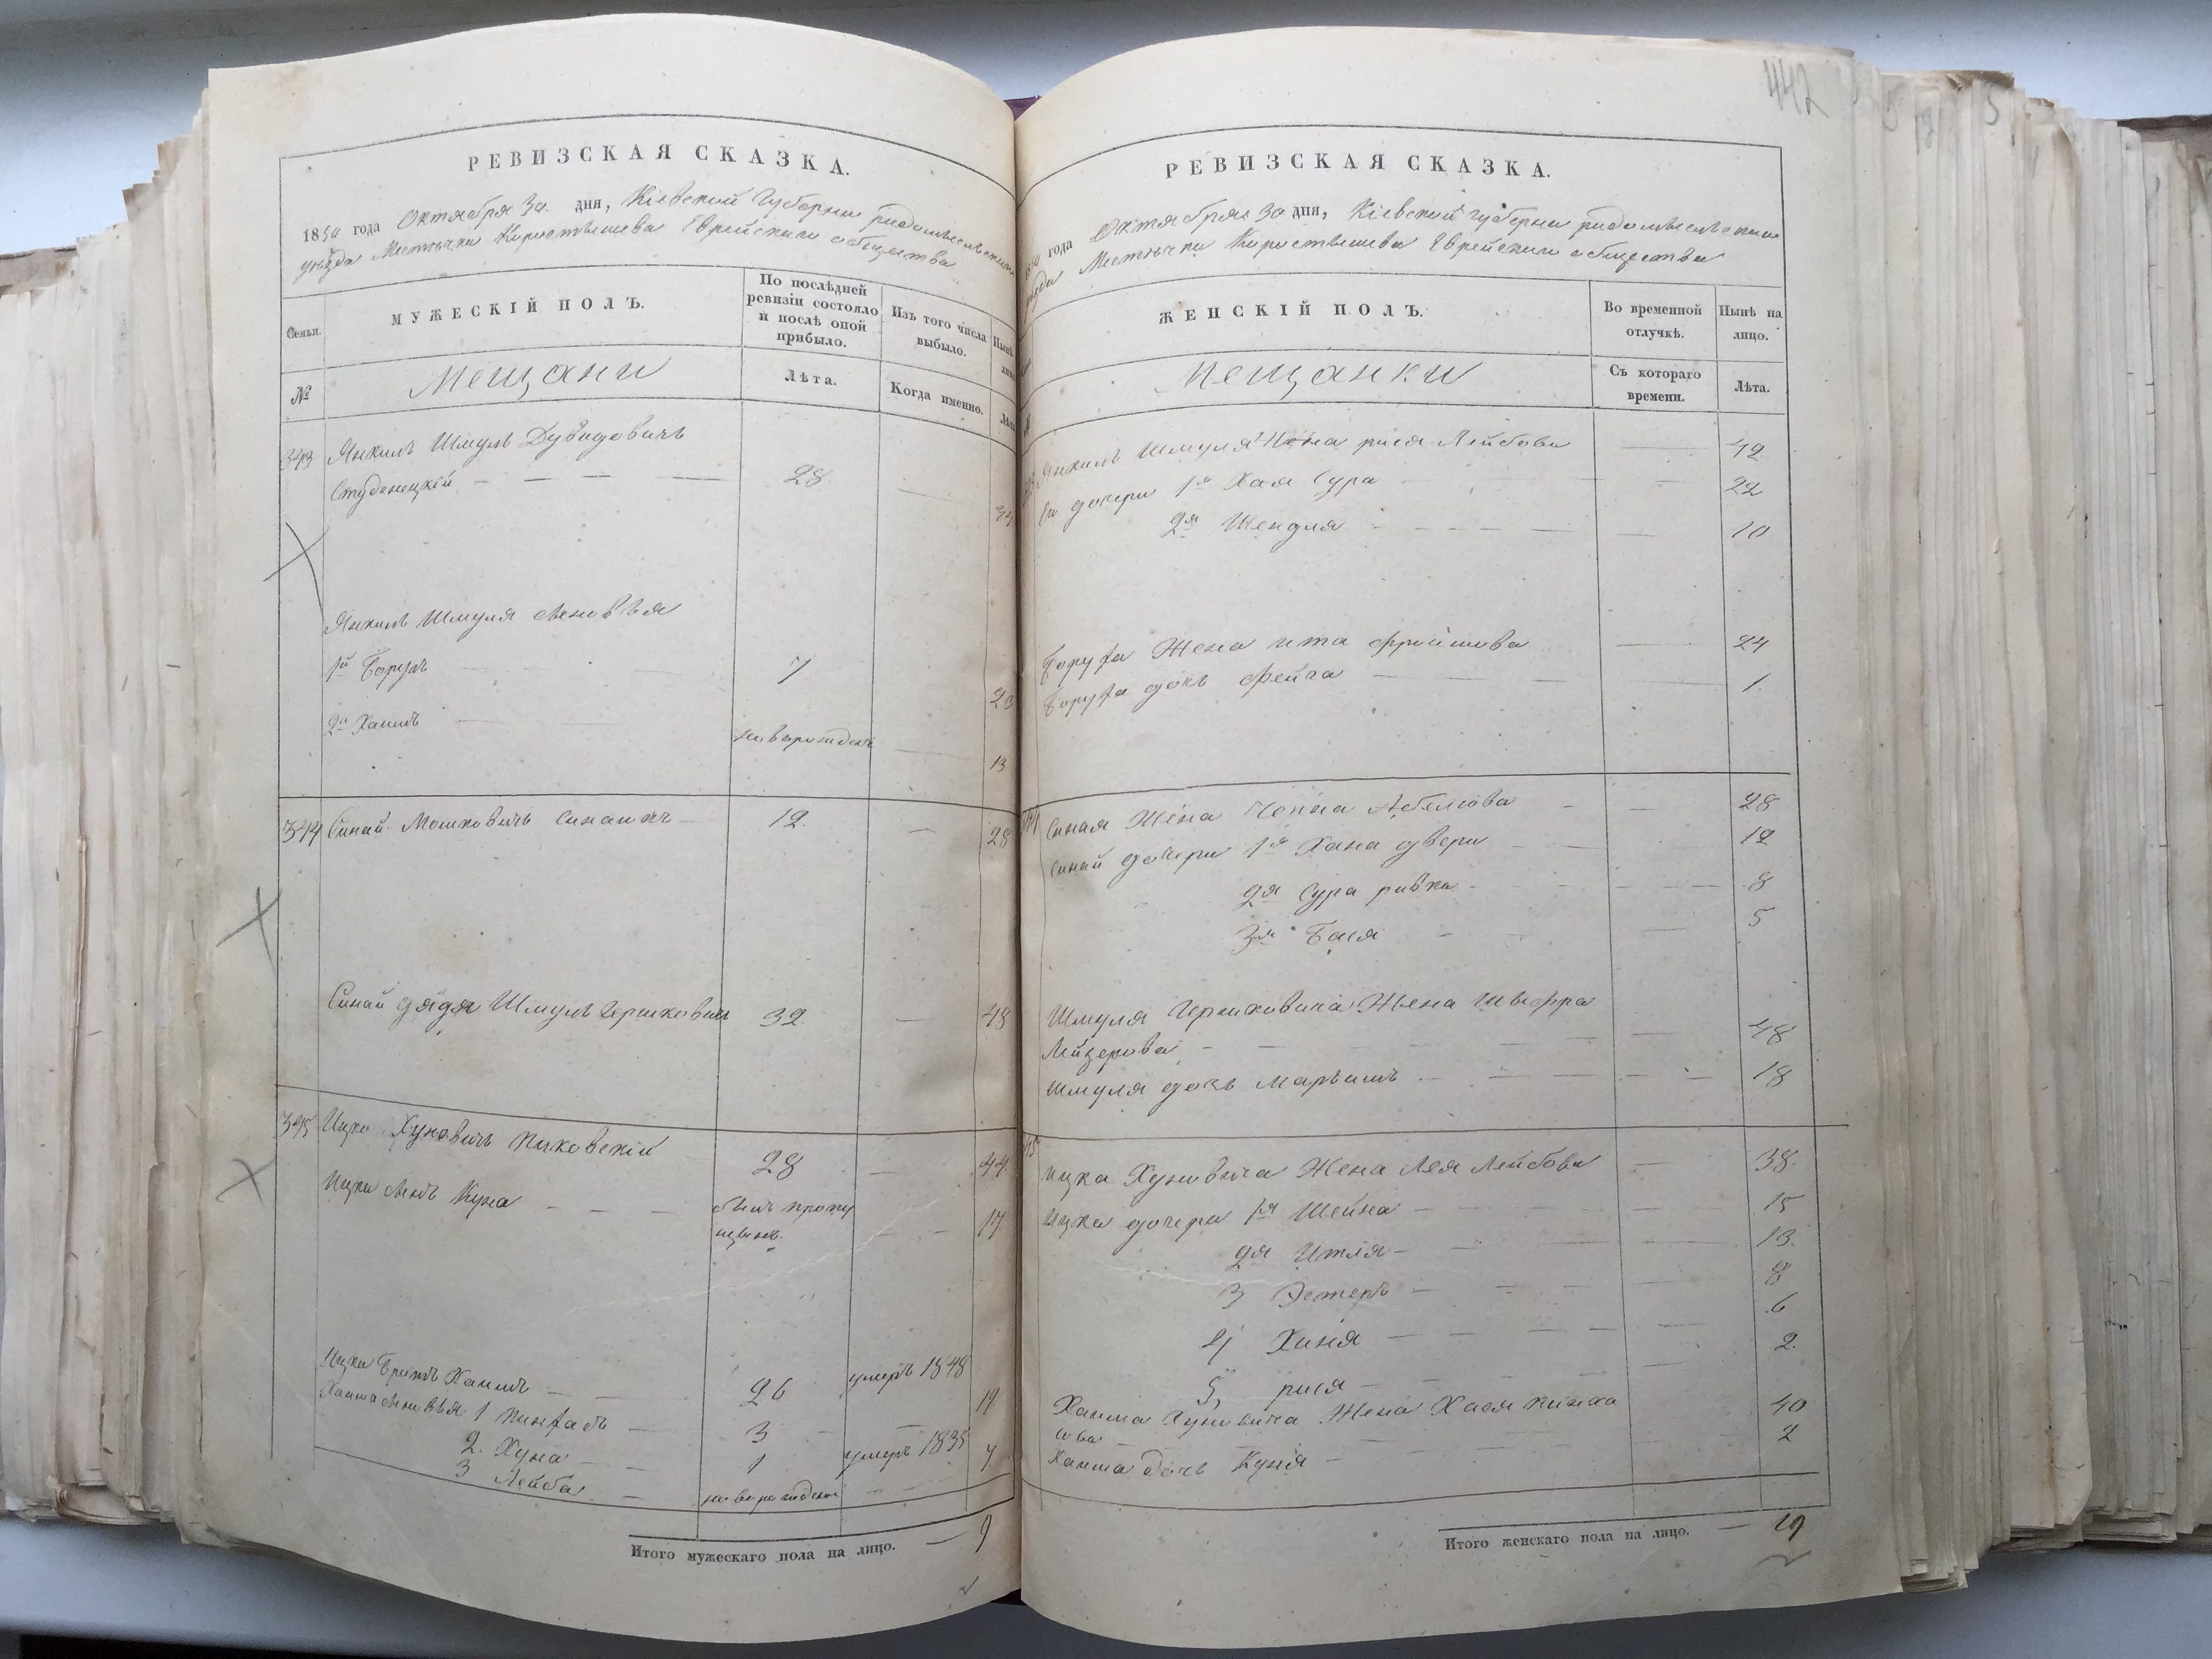 442
РЕВИЗСКАЯ СКАЗКА.
1850 года Октября 30 дня, Кіевской Губерни радомысльскаго
уѣзда Мѣстечка Коростышева Еврейскаго общества
Семьи.
МУЖЕСКІЙ ПОЛЪ.
По послѣдней ревизіи состояло и послѣ оной прибыло.
Изъ того числа выбыло.
№
Мещани
Лѣта.
Когда именно.
343 Янкель Шмуль Дувидовичъ
Студенецкій 28
Янкель Шмуля сыновья
1й Борухъ 7 23
2й Хаимъ новорожденъ 13
344 Синай Мошковичъ Синаикъ 12. 28
Синай дядя Шмуль Гершковичъ 32 48
345 Ицко Хуновичъ 28 44
Ицки сынъ Куна былъ пропущенъ. 17
Ицки братъ Хаимъ 26 умеръ 1848
Хаима сыновья 1 Пинхасъ 3 19
2. Хуна 1 умеръ 1835
3 Лейба новорожденъ 7
Итого мужескаго пола на лицо. — 9
РЕВИЗСКАЯ СКАЗКА.
года Октября 30 дня, Кіевской губерни радомысльскаго
Мѣстечка Коростышева Еврейскаго общества
ЖЕНСКІЙ ПОЛЪ.
Во временной отлучкѣ.
Нынѣ на лицо.
Мещанки
Съ котораго времени.
Лѣта.
Янкель Шмуля Жена рися Лейбова 42
дочери 1я Хая Сура 22
2я Шендля 10
Боруха Жена ита 24
Боруха дочь Фейга 1.
Синая Жена 28
Синай дочери 1я Хана двери 12
2я Сура ривка 8
3я Бася 5
Шмуля Гершковича Жена Шифра
Лейзерова 48
Шмуля дочь Марьямъ 18
Ицка Хуновича Жена Лея Лейбова 38.
Ицка дочери 1я Шейна 15
2я Итля 13.
3 Эстеръ 8
4 Ханя 6
5, рися 2.
Хаима Хуновича Жена Хася 40
Хаима дочь Куня 2
Итого женскаго пола на лицо. — 19